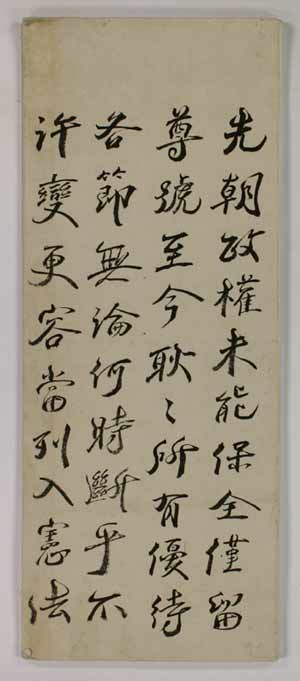 先朝政權未能保全僅留
尊號至今耿〻所有優待
各節無論何時斷乎不
許變更容當列入憲法